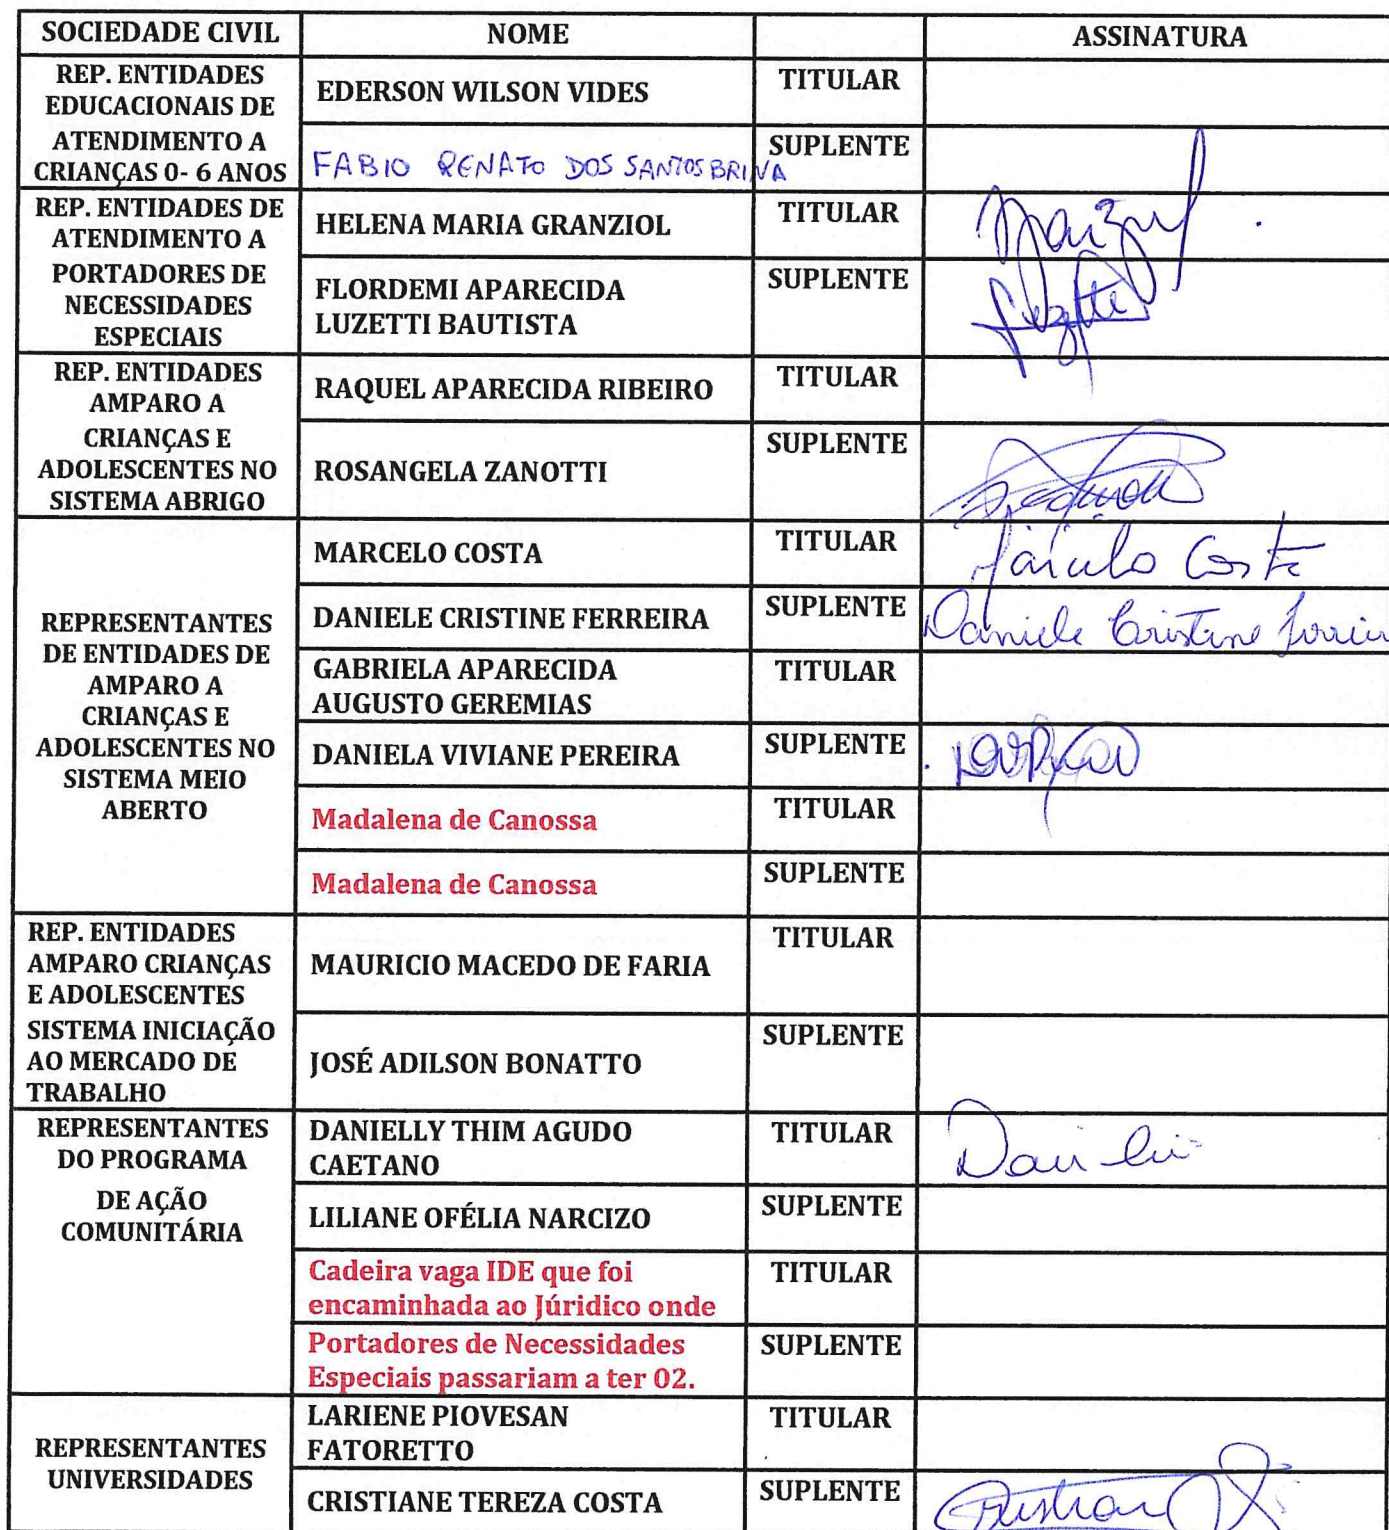 SOCIEDADE CIVIL NOME ASSINATURA
REP. ENTIDADES
EDUCACIONAIS DE
ATENDIMENTO A
CRIANÇAS 0- 6 ANOS
EDERSON WILSON VIDES TITULAR
FABIO RENATO DOS SANTOS BRINA SUPLENTE
REP. ENTIDADES DE
ATENDIMENTO A
PORTADORES DE
NECESSIDADES
ESPECIAIS
HELENA MARIA GRANZIOL TITULAR
FLORDEMI APARECIDA
LUZETTI BAUTISTA
SUPLENTE
REP. ENTIDADES
AMPARO A
CRIANÇAS E
ADOLESCENTES NO
SISTEMA ABRIGO
RAQUEL APARECIDA RIBEIRO TITULAR
ROSANGELA ZANOTTI SUPLENTE
REPRESENTANTES
DE ENTIDADES DE
AMPARO A
CRIANÇAS E
ADOLESCENTES NO
SISTEMA MEIO
ABERTO
MARCELO COSTA TITULAR Costa
DANIELE CRISTINE FERREIRA SUPLENTE Daniele Cristine
GABRIELA APARECIDA
AUGUSTO GEREMIAS
TITULAR
DANIELA VIVIANE PEREIRA SUPLENTE
Madalena de Canossa TITULAR
Madalena de Canossa SUPLENTE
REP. ENTIDADES
AMPARO CRIANÇAS
E ADOLESCENTES
SISTEMA INICIAÇÃO
AO MERCADO DE
TRABALHO
MAURICIO MACEDO DE FARIA TITULAR
JOSÉ ADILSON BONATTO SUPLENTE
REPRESENTANTES
DO PROGRAMA
DE AÇÃO
COMUNITÁRIA
DANIELLY THIM AGUDO
CAETANO
TITULAR
LILIANE OFÉLIA NARCIZO SUPLENTE
Cadeira vaga IDE que foi
encaminhada ao Júridico onde
TITULAR
Portadores de Necessidades
Especiais passariam a ter 02.
SUPLENTE
REPRESENTANTES
UNIVERSIDADES
LARIENE PIOVESAN
FATORETTO
TITULAR
CRISTIANE TEREZA COSTA SUPLENTE